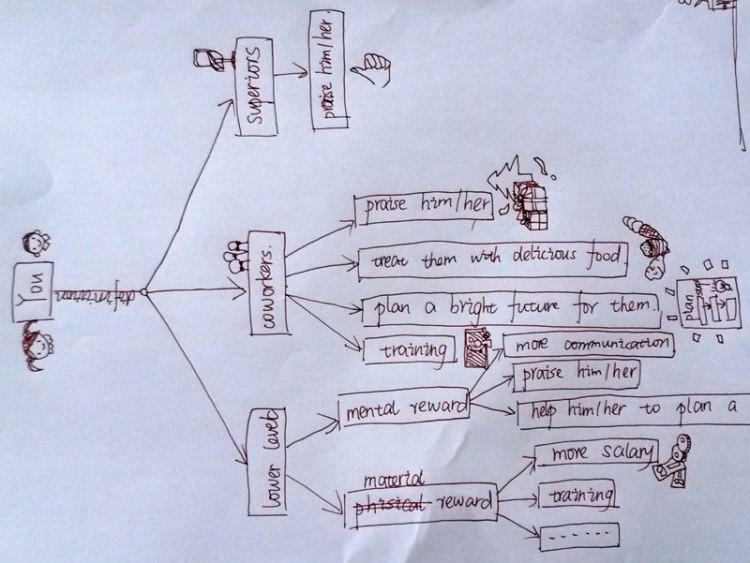 You
definition
superiors
praise him/her.
coworkers.
praise him/her
treat them with delicious food.
plan a bright future for them.
plan
training
lower level
mental reward
more communication
praise him/her
help him/her to plan a
material
phisical reward
more salary
training
------